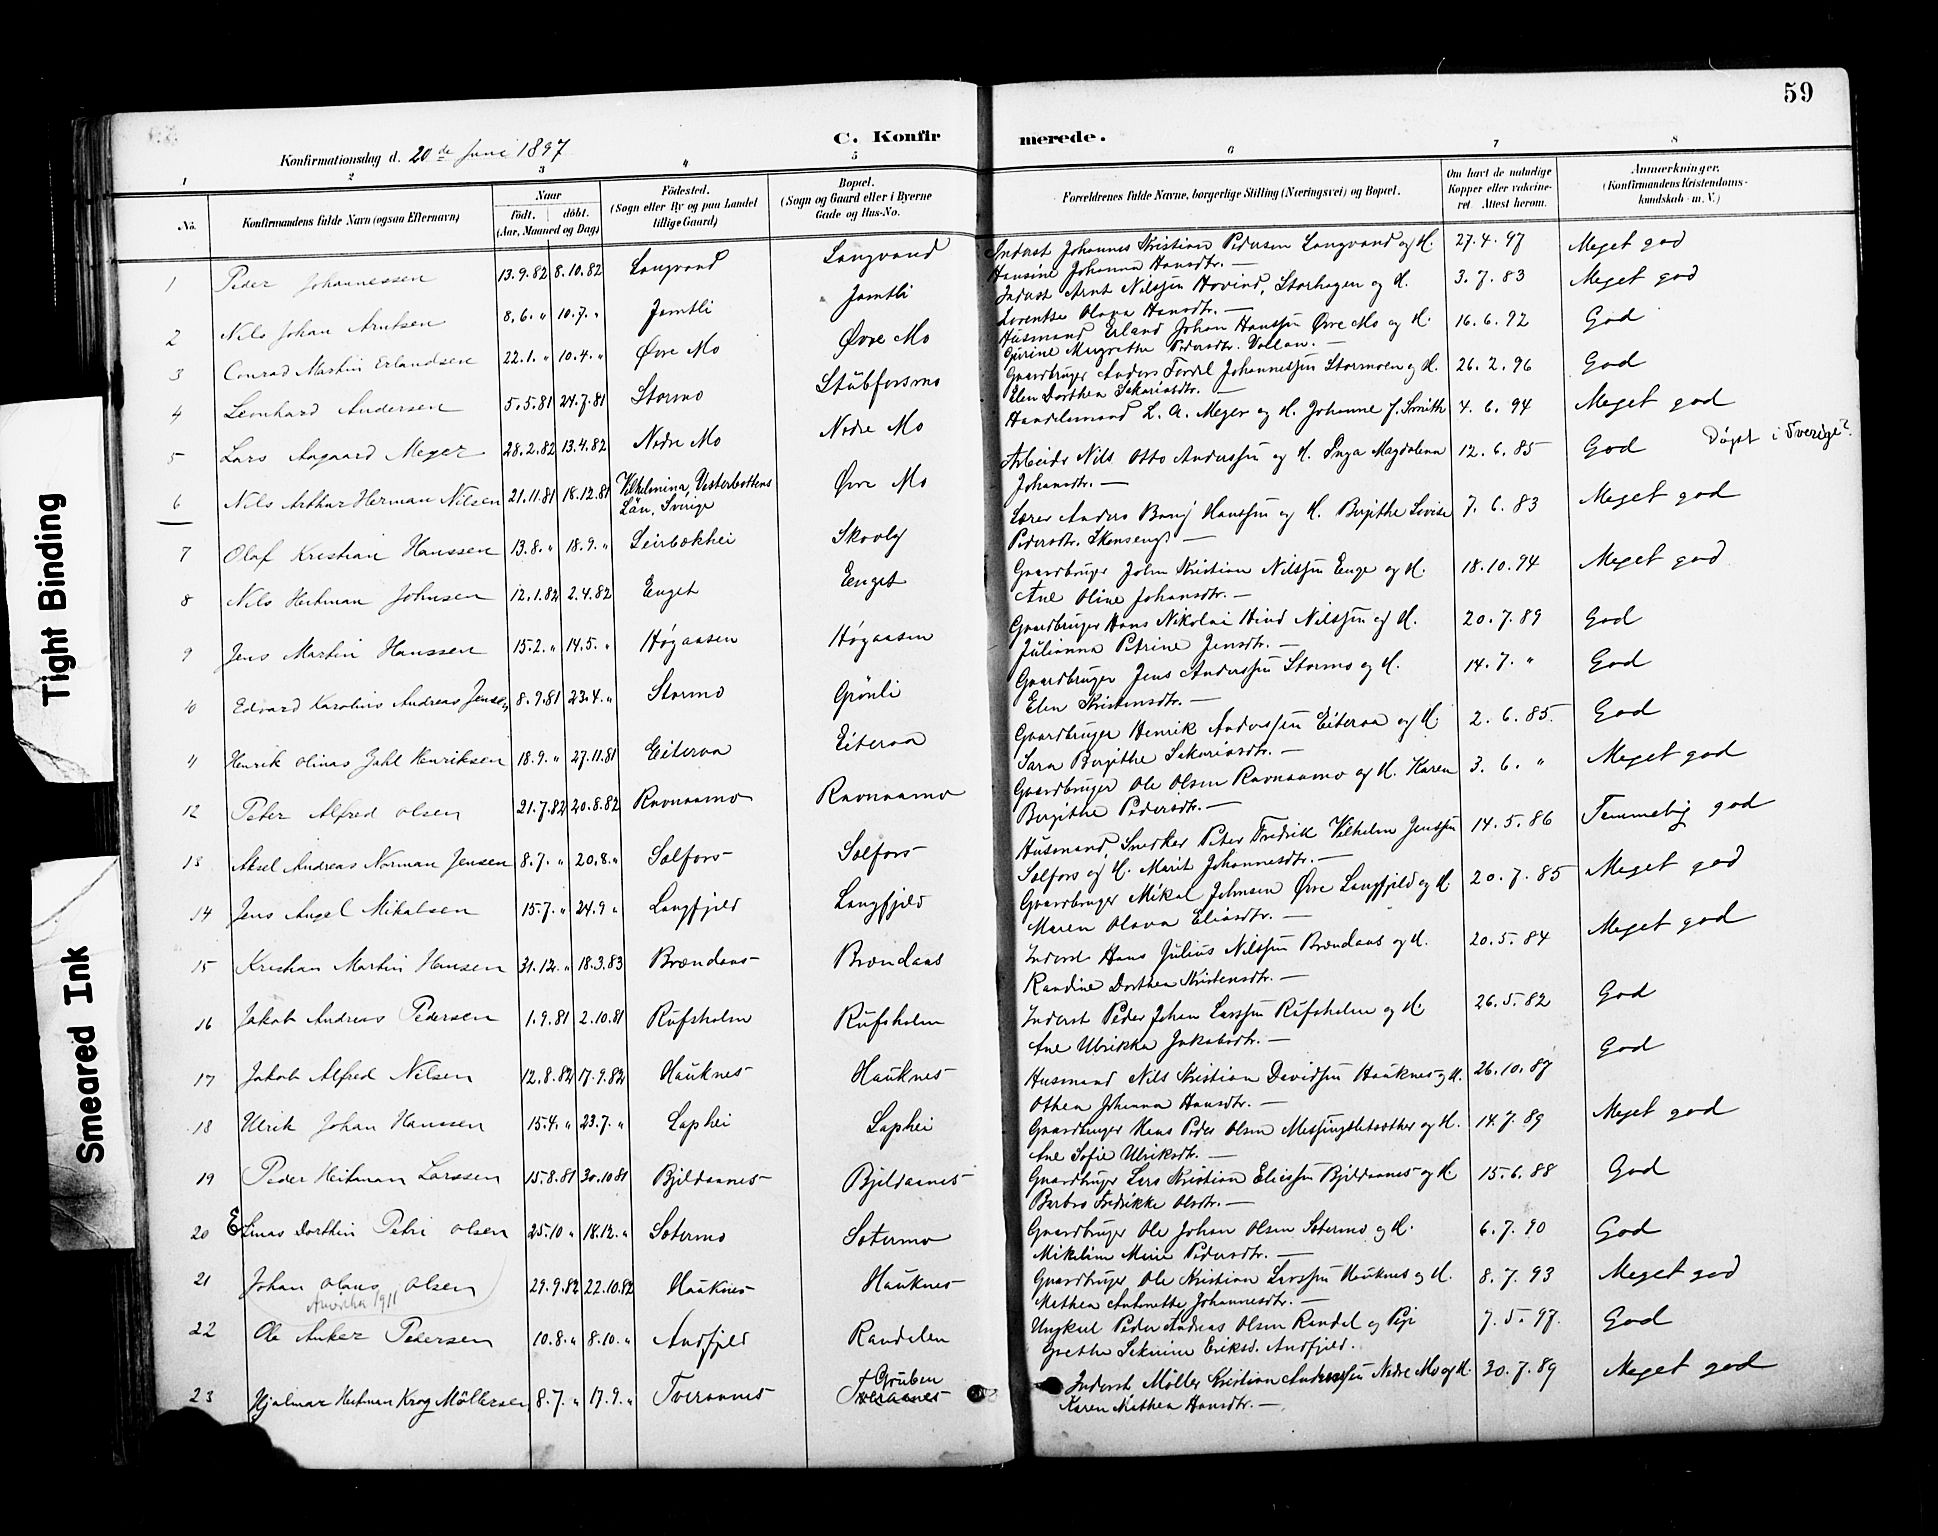 59
C. Konfirmerede.
Konfirmationsdag d. 20de Juni 1897
1 2 3 4 5 6 7 8
No.
Konfirmandens fulde Navn (ogsaa Efternavn)
Naar
Födt. döbt.
(Aar, Maaned og Dag)
Födested.
(Sogn eller By og paa Landet
tillige Gaard)
Bopæl.
(Sogn og Gaard eller i Byerne
Gade og Hus-No.
Forældrenes fulde Navne, borgerlige Stilling (Næringsvei) og Bopæl.
Om havt de naturlige
Kopper eller vakcine-
ret Attest herom.
Anmærkninger.
(Konfirmandens Kristendoms-
kundskab m. V.)
1 Peder Johannessen 13.9.82 8.10.82 Langvand Langvand Inderst Johannes Kristian Pedersen Langvand og H. 27.4.97 Meget god
Hansine Johanna Hansdtr. —
2 Nils Johan Arntsen 8.6. " 10.7. " Jamtli Jamtli Inderst Arnt Nilssen Hovind, Storhagen og H. 3.7.83 Meget god
Lorentse Olava Hansdtr. —
3 Conrad Martin Erlandsen 22.1. " 10.4. " Øvre Mo Øvre Mo Husmand Erland Johan Hanssen Øvre Mo og H. 16.6.92 God
Gurine Margrethe Pedersdtr. Vollan. —
4 Leonhard Andersen 5.5.81 24.7.81 Stormo Stubforsmo Gaardbruger Anders Fordel Johannessen Stormoen og H. 26.2.96 God
Elen Dorthea Sakariasdtr. —
5 Lars Aagaard Meyer 28.2.82 13.4.82 Nedre Mo Nedre Mo Handelsmand L. A. Meyer og H. Johanne J. Smith 4.6.94 Meget god
6 Nils Arthur Herman Nilsen 21.11.81 18.12.81 Vilhelmina, Vesterbottens Øvre Mo Arbeider Nils Otto Anderssen og H. Inga Magdalena 12.6.85 God Døpt i Sverige?
Län, Sverige Johansdtr. —
7 Olaf Kristian Hanssen 13.8. " 18.9. " Leirbækhei Skovly Lærer Anders Banj Hanssen og H. Birjithe Lovise 7.6.83 Meget god
Pedersdtr. —
8 Nils Heitman Johnsen 12.1.82 2.4.82 Enget Enget Gaardbruger John Kristian Nilssen Enge og H. 18.10.94 Meget god
Ane Oline Johansdtr. —
9 Jens Martin Hanssen 15.2. " 14.5. " Høgaasen Høgaasen Gaardbruger Hans Nikolai Hind Nilssen og H. 20.7.89 God
Julianna Petrine Jensdtr. —
10 Edvard Karolius Andreas Jensen 8.9.81 23.4. " Stormo Grönli Gaardbruger Jens Anderssen Stormo og H. 14.7. " God
Elen Kristensdtr. —
11 Henrik Olinas Jahl Henriksen 18.9. " 27.11.81 Eiteraa Eiteraa Gaardbruger Henrik Anderssen Eiteraa og H. 2.6.85. God
Sara Birjithe Sakariasdtr. —
12 Peter Alfred Olsen 21.7.82 20.8.82 Ravnaamo Ravnaamo Gaardbruger Ole Olsen Ravnaamo og H. Karen 3.6. " Meget god
Birjithe Pedersdtr. —
13 Aksel Andreas Norman Jensen 8.7. " 20.8. " Selfors Selfors Husmand, Snedker Peter Fredrik Vilhelm Jenssen 14.5.86 Temmelig god
Selfors og H. Marit Johannesdtr. —
14 Jens Angel Mikalsen 15.7. " 24.9 " Langfjeld Langfjeld Gaardbruger Mikal Johnsen Øvre Langfjeld og H. 20.7.85 Meget god
Maren Olava Eliasdtr. —
15 Kristian Martin Hansen 31.12. " 18.3.83 Brændaas Brændaas Inderst Hans Julius Nilssen Brændaas og H. 20.5.84 Meget god
Randine Dorthea Kristensdtr. —
16 Jakob Andreas Pedersen 1.9.81 2.10.81 Rufsholm Rufsholm Inderst Peder Johan Larssen Rufsholm og H. 26.5.82 God
Ane Ulrikka Jakobsdtr. —
17 Jakob Alfred Nilsen 12.8.82 17.9.82 Hauknes Hauknes Husmand Nils Kristian Davidssen Hauknes og H. 26.10.87 God
Othea Johanna Hansdtr. —
18 Ulrik Johan Hanssen 15.4. " 23.7. " Laphei Laphei Gaardbruger Hans Peder Olsen Messingsletsæther og H. 14.7.89 Meget god
Ane Sofie Ulriksdtr. —
19 Peder Heitman Larssen 15.8.81 30.10.81 Bjeldaanes Bjeldaanes Gaardbruger Lars Kristian Eliassen Bjeldaanes og H. 15.6.88 God
Berbro Fredrikke Olsdtr. —
20 Elinas Dorthin Petri Olsen 25.10 " 18.12. " Sætermo Sætermo Gaardbruger Ole Johan Olsen Sætermo og H. 6.7.90 God
Mikeline Marie Pedersdtr. —
21 Johan Olaus Olsen 29.9.82 22.10.82 Hauknes Hauknes Gaardbruger Ole Kristian Larssen Hauknes og H. 8.7.93 Meget god
Amerika 1911 Mathea Antonette Johannesdtr. —
22 Ole Anker Petersen 10.8. " 8.10. " Andfjeld Randalen Ungkarl Peder Andreas Olsen Randal og Pige 7.5.97. God
Grethe Sekuine Eriksd. Andfjeld.
23 Hjalmar Heitman Krog Möllersen 8.7. " 17.9. " Tveraanes Gruben Tveraanes Inderst Möller Kristian Anderssen Nedre Mo og H. 30.7.89 Meget god
Karen Mathea Hansdtr. —
Tight Binding
Smeared Ink